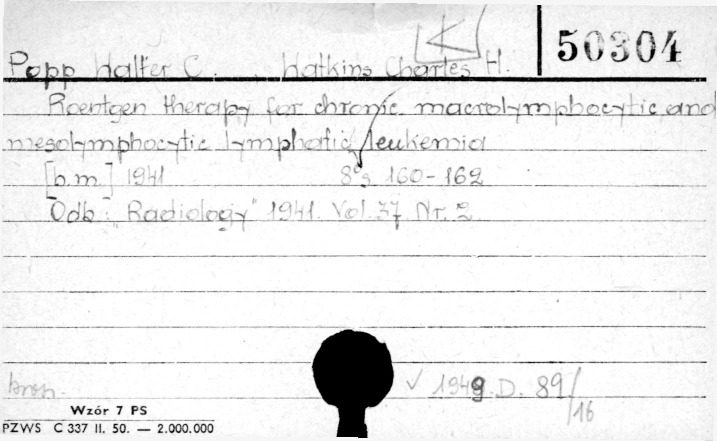 50304
Popp Walter C. Watkins Charles H.
Roentgen therapy for chronic macrolymphocytic and
mesolymphocytic lymphatic leukemia
[b.m.] 1941 8° s. 160-162
Odb. "Radiology" 1941. Vol. 37. Nr. 2
✓ 1949. D. 89/16
Wzór 7 PS
PZWS C 337 II. 50. — 2.000.000